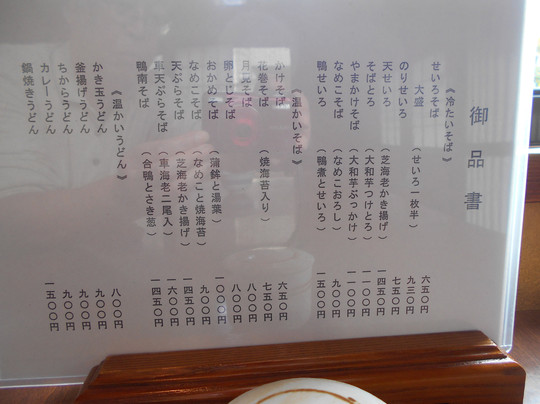 御品書
《冷たいそば》
せいろそば 六五〇円
大盛（せいろ一枚半） 九三〇円
のりせいろ 七五〇円
天せいろ（芝海老かき揚げ） 一四五〇円
そばとろ（大和芋つけとろ） 一一〇〇円
やまかけそば（大和芋ぶっかけ） 一一〇〇円
なめこそば（なめこおろし） 九〇〇円
鴨せいろ（鴨煮とせいろ） 一五〇〇円
《温かいそば》
かけそば 六五〇円
花巻そば（焼海苔入り） 七五〇円
月見そば 八〇〇円
卵とじそば 八〇〇円
おかめそば（蒲鉾と湯葉） 一〇〇〇円
なめこそば（なめこと焼海苔） 九〇〇円
天ぷらそば（芝海老かき揚げ） 一四五〇円
車天ぷらそば（車海老二尾入） 一六〇〇円
鴨南そば（合鴨とさき葱） 一四五〇円
《温かいうどん》
かき玉うどん 八〇〇円
釜揚げうどん 九〇〇円
ちからうどん 九〇〇円
カレーうどん 九〇〇円
鍋焼きうどん 一五〇〇円